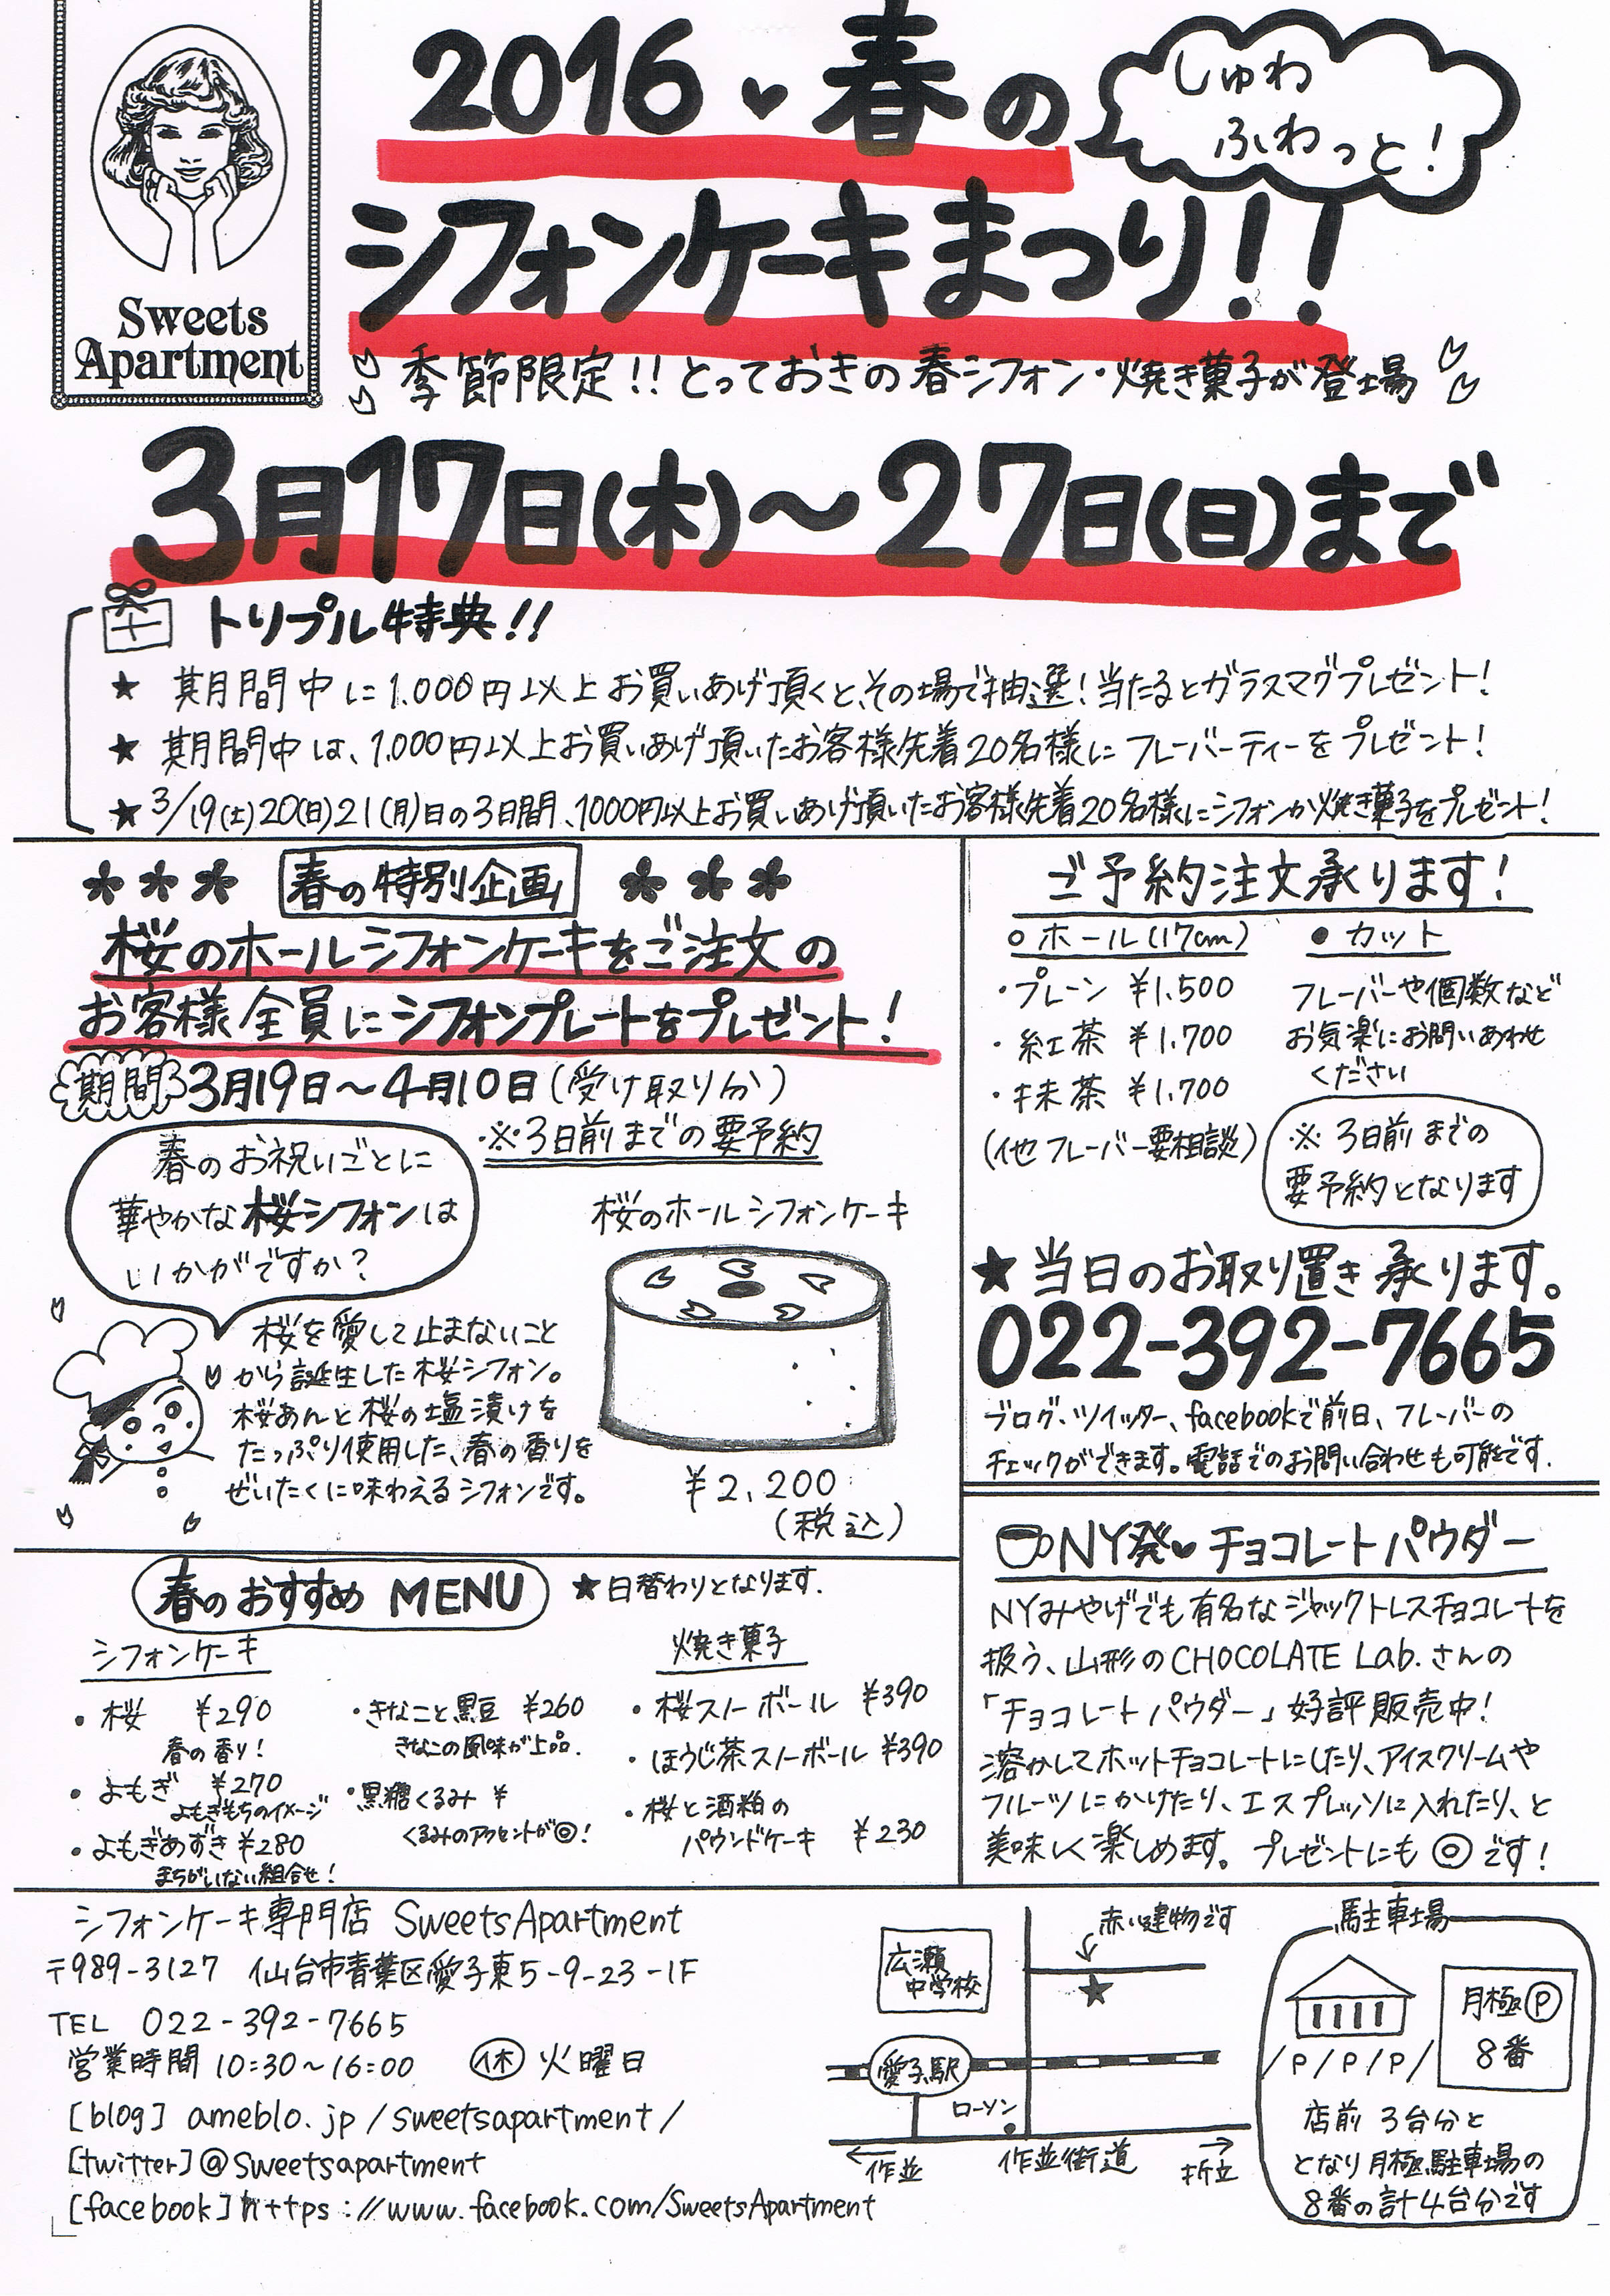 Sweets
Apartment
2016 ♥ 春の
しゅわ
ふわっと！
シフォンケーキまつり！！
季節限定！！とっておきの春シフォン・焼き菓子が登場
3月17日(木)～27日(日)まで
トリプル特典！！
★ 期間中に1.000円以上お買いあげ頂くと、その場で抽選！当たるとガラスマグプレゼント！
★ 期間中は、1.000円以上お買いあげ頂いたお客様先着20名様にフレーバーティーをプレゼント！
★ 3/19(土)20(日)21(月)日の3日間、1000円以上お買いあげ頂いたお客様先着20名様にシフォンか焼き菓子をプレゼント！
春の特別企画
桜のホールシフォンケーキをご注文の
お客様全員にシフォンプレートをプレゼント！
期間 3月19日～4月10日(受け取り分)
・※3日前までの要予約
春のお祝いごとに
華やかな桜シフォンは
いかがですか？
桜を愛して止まないこと
から誕生した桜シフォン。
桜あんと桜の塩漬けを
たっぷり使用した、春の香りを
ぜいたくに味わえるシフォンです。
桜のホールシフォンケーキ
¥2,200
(税込)
ご予約注文承ります！
○ホール(17cm)
・プレーン ¥1.500
・紅茶 ¥1.700
・抹茶 ¥1.700
(他フレーバー要相談)
●カット
フレーバーや個数など
お気楽にお問いあわせ
ください
※ 3日前までの
要予約となります
★当日のお取り置き承ります。
022-392-7665
ブログ・ツイッター、facebookで前日、フレーバーの
チェックができます。電話でのお問い合わせも可能です.
NY発♥チョコレートパウダー
NYみやげでも有名なジャックトレスチョコレートを
扱う、山形のCHOCOLATE Lab.さんの
「チョコレートパウダー」好評販売中！
溶かしてホットチョコレートにしたり、アイスクリームや
フルーツにかけたり、エスプレッソに入れたり、と
美味しく楽しめます。プレゼントにも◎です！
春のおすすめ MENU
★日替わりとなります.
シフォンケーキ
・桜 ¥290
春の香り！
・よもぎ ¥270
よもぎもちのイメージ
・よもぎあずき ¥280
まちがいない組合せ！
・きなこと黒豆 ¥260
きなこの風味が上品.
・黒糖くるみ ¥
くるみのアクセントが◎！
焼き菓子
・桜スノーボール ¥390
・ほうじ茶スノーボール ¥390
・桜と酒粕の
パウンドケーキ ¥230
シフォンケーキ専門店 SweetsApartment
〒989-3127 仙台市青葉区愛子東5-9-23-1F
TEL 022-392-7665
営業時間 10:30～16:00 休 火曜日
[blog] ameblo.jp/sweetsapartment/
[twitter]@Sweetsapartment
[facebook] https://www.facebook.com/SweetsApartment
赤い建物です
広瀬
中学校
★
愛子駅
ローソン
←作並
作並街道
→折立
駐車場
/P/P/P/
月極Ⓟ
8番
店前 3台分と
となり月極駐車場の
8番の計4台分です